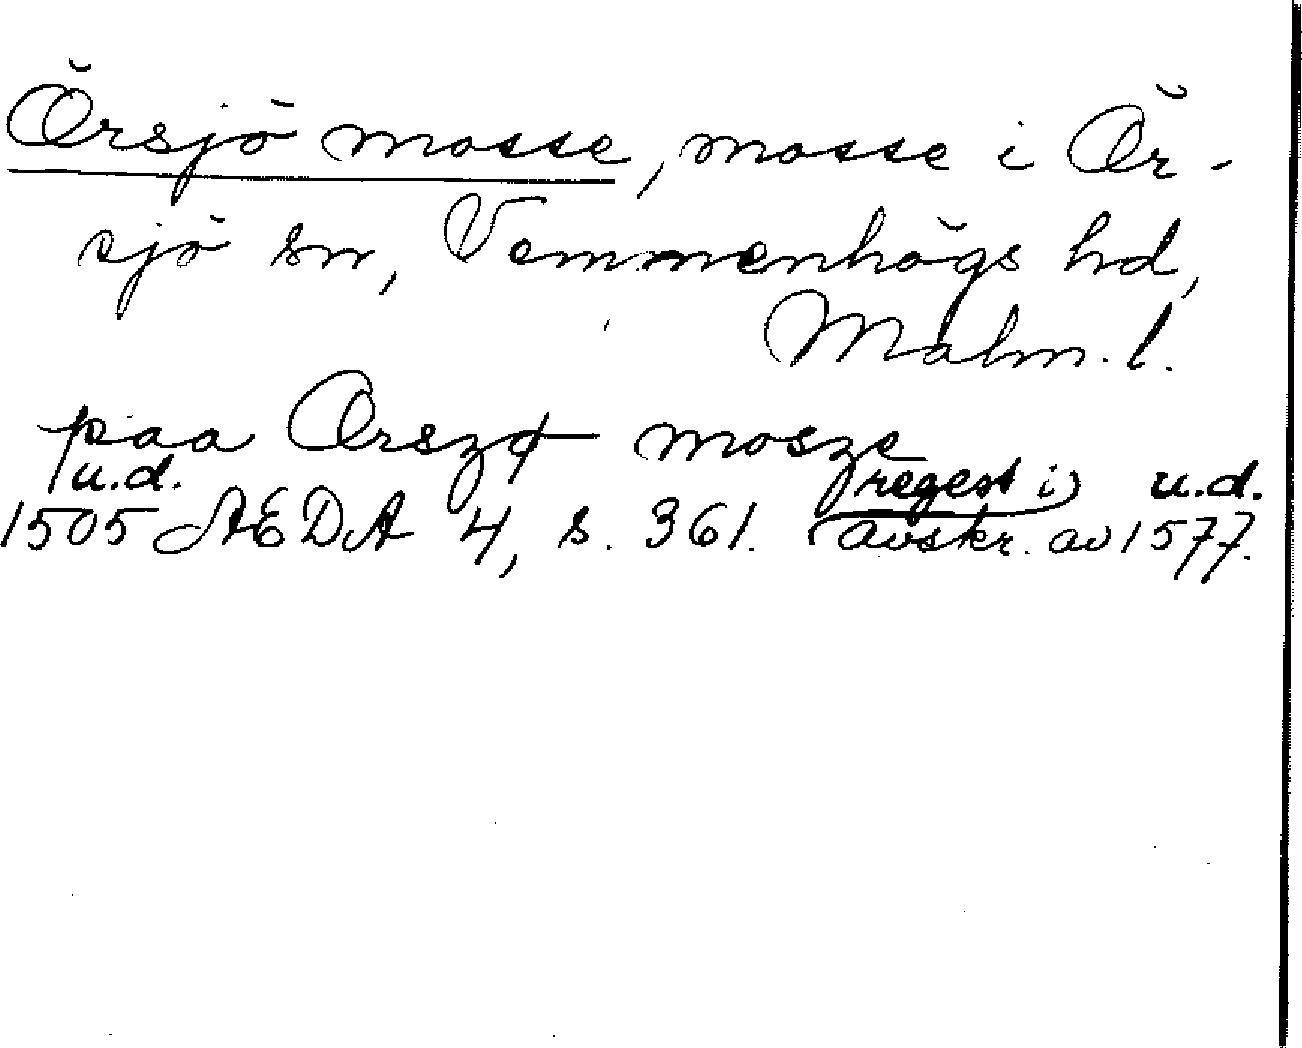 Örsjö mosse, mosse i Ör-
sjö sn, Vemmenhögs hd,
Malm. l.
paa Orszø mosze
u.d. (regest i) u.d.
1505 ÆDA 4, s. 361. (avskr. av 1577.